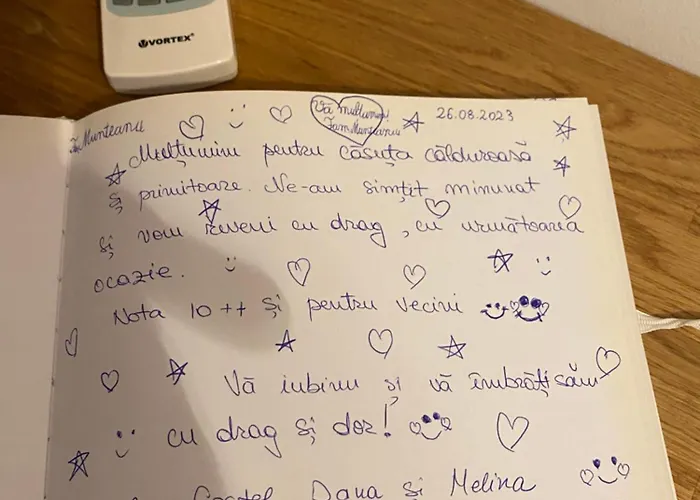 VORTEX
Fam Munteanu
Vă mulțumim!
Fam Munteanu
26.08.2023
Mulțumim pentru căsuța călduroasă
și primitoare. Ne-am simțit minunat
și vom reveni cu drag, cu următoarea
ocazie.
Nota 10++ și pentru vecini
Vă iubim și vă îmbrățișăm
cu drag și dor!
Costel Dana și Melina